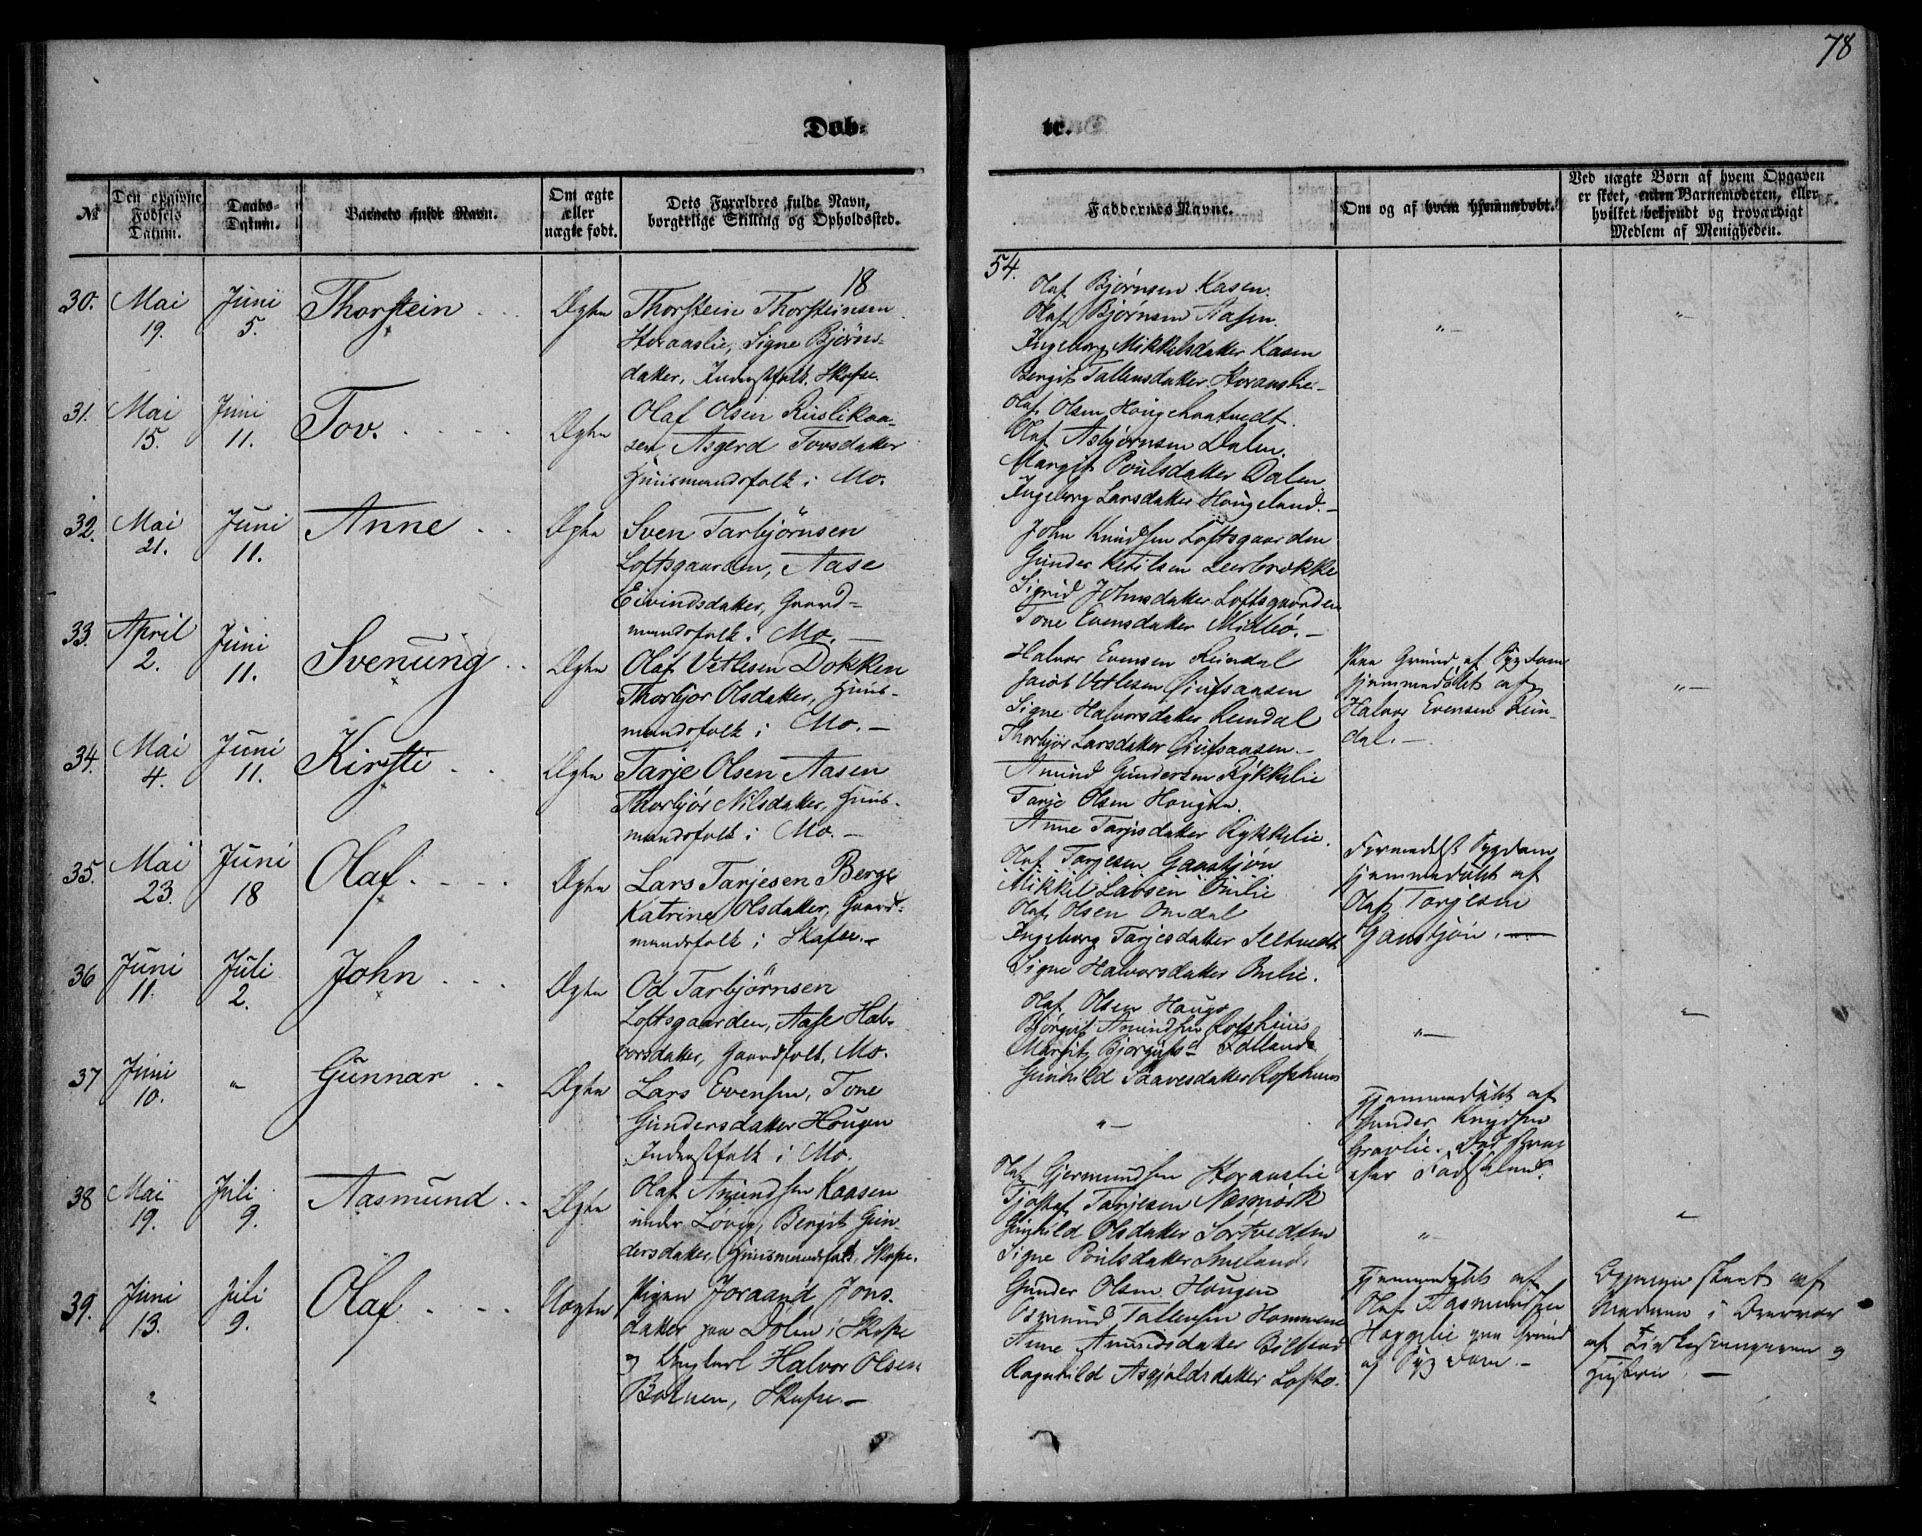 78
Døb- te.
№
Den opgivne Fødsels Datum.
Daabs-Datum.
Barnets fulde Navn.
Om ægte eller uægte født.
Dets Forældres fulde Navn, borgerlige Stilling og Opholdssted.
Faddernes Navne.
Om og af hvem hjemmedøbt.
Ved uægte Børn af hvem Opgaven er skeet, enten Barnemoderen, eller hvilket bekjendt og troværdigt Medlem af Menigheden.
18 54.
30. Mai 19. Juni 5. Thorstein Ægte
Thorstein Thorsteinsen
Horaaslie, Signe Bjørns-
datter, Inderstfolk, Skafse.
Olaf Bjørnsen Kasen.
Olaf Bjørnsen Aasen.
Ingeborg Mikkelsdatter Kasen
Bergit Tallensdatter Horaaslie. -
"-
"-
31. Mai 15. Juni 11. Tov. Ægte
Olaf Olsen Ruslikaa-
sen, Asgerd Tovsdatter
Huusmandsfolk i Mo.
Olaf Olsen
Olaf Asbjørnsen Dalen.
Margit Poulsdatter Dalen
Ingeborg Larsdatter Hougeland. -
32. Mai 21. Juni 11. Anne Ægte
Sven Tarbjörnsen
Loftsgaarden, Aase
Eivindsdatter, Gaard-
mandsfolk i Mo. -
John Knudsen Loftsgaarden
Gunder Ketilsen
Sigrid Johnsdatter Loftsgaarden
Tone Evensdatter Midbö. -
33. April 2. Juni 11. Svenung Ægte
Olaf Vetlesen Dokken
Thorbjør Olsdatter, Huus-
mandsfolk i Mo. -
Halvor Evensen Reindal
Jacob Vetlesen
Signe Halvorsdatter Reindal
Thorbjør Larsdatter
Paa Grund af Sygdom
hjemmedøbt af
Halvor Evensen Rein-
dal. -
"-
34. Mai 4. Juni 11. Kirsti Ægte
Tarje Olsen Aasen
Thorbjør Nilsdatter, Huus-
mandsfolk i Mo. -
Amund Gundersen Rykkelie
Tarje Olsen Hougen.
Anne Tarjesdatter Rykkelie.
35. Mai 23. Juni 18 Olaf. Ægte
Lars Tarjesen Berge
Katrine Olsdatter, Gaard-
mandsfolk i Skafse. -
Olaf Tarjesen Gaastjøn
Mikkel Larsen
Olaf Olsen Omdal
Ingeborg Tarjesdatter
Signe Halvorsdatter
Formedelst Sygdom
hjemmedøbt af
Olaf Tarjesen
Gaastjøn. -
36 Juni 11. Juli 2. John Ægte
Od Tarbjørnsen
Loftsgaarden, Aase Hal-
vorsdatter, Gaardfolk, Mo.
Olaf Olsen Haugo
Bjørgvit Amundsen
Margit
Gunhild Saavesdatter
"-
"-
37 Juni 10. " Gunnar Ægte
Lars Evensen, Tone
Gundersdatter Hougen
Inderstfolk i Mo.
"-
Hjemmedøbt af
Gunder Knudsen
Gravlie. Død strax
efter
38 Mai 19. Juli 9. Aasmund Ægte
Olaf Amundsen Kaasen
under Løvig, Bergit Gun-
dersdatter, Huusmandsfolk, Skafse.
Olaf Gjermundsen Horaaslie
Tjøstaf Tarjesen Næsmork
Gunhild Olsdatter Sortvedten
Signe Poulsdatter Smeland.
"-
"
39. Juni 13. Juli 9. Olaf Uægte
Pigen Joraand Jons-
datter paa Dolin i Skafse
og Ungkarl Halvor Olsen
Botnen, Skafse. -
Gunder Olsen Hougen
Osmund Tallensen
Anne Amundsdatter
Ragnhild Asgjøldsdatter Lofto.
Hjemmedøbt af
Olaf Aasmundsen
Haggelie paa Grund
af Sygdom. -
Opgaven skeet af
Moderen i Overvær
af Kirkesangeren og